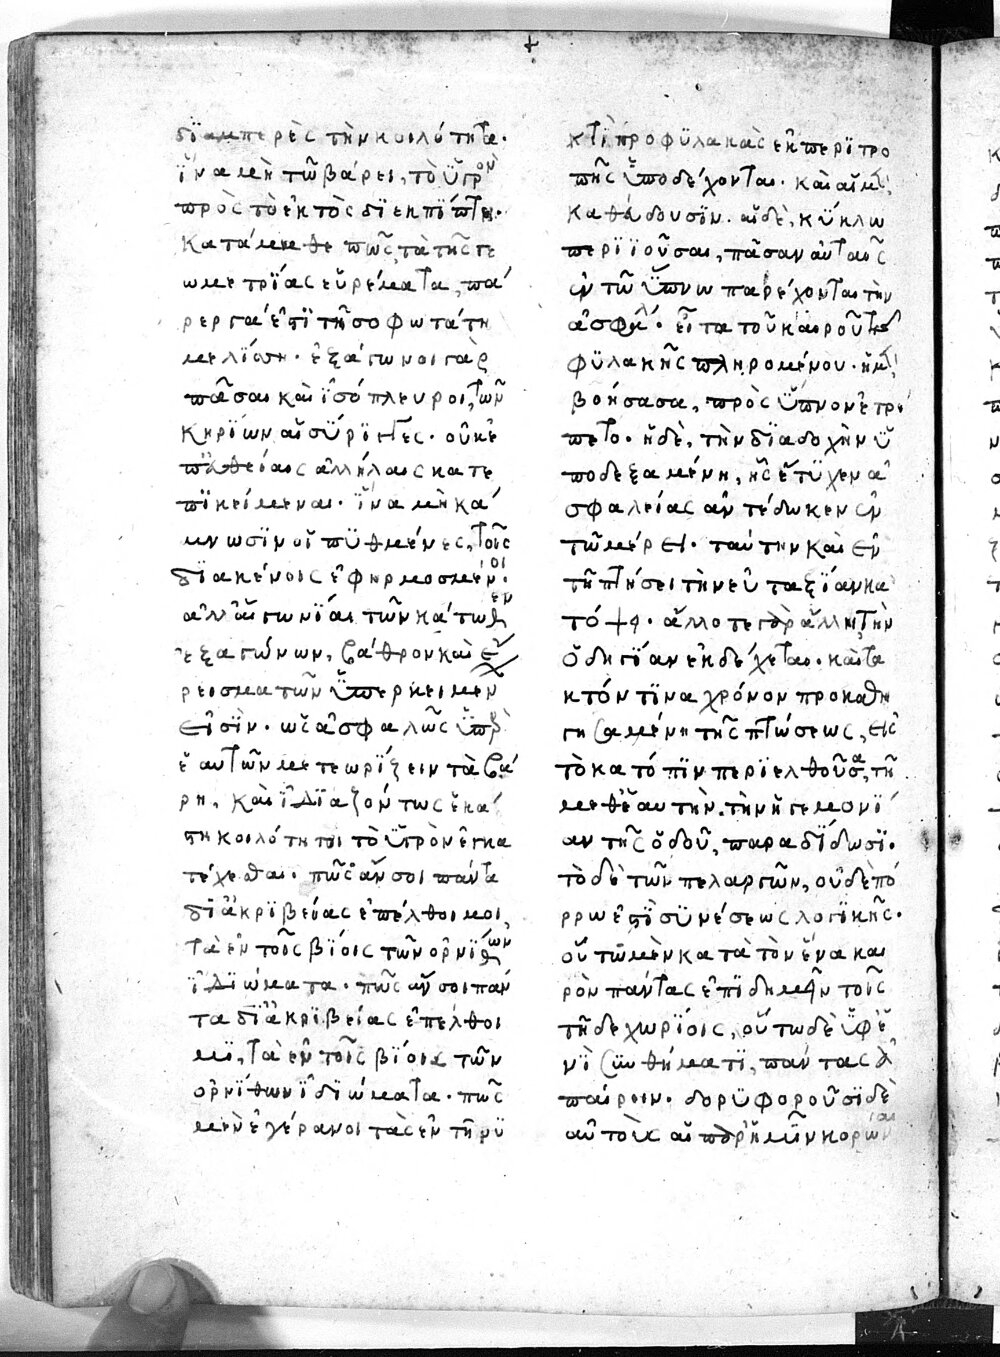 +
δϊαμπερὲς τὴν κοιλότητα·
ἵ̈να μὴ τῶ βάρει, τὸ ὑ̈γρὸν
πρὸς τὸ ἐκτὸς δϊεκπϊπτη·
Κατάμαθε πῶς τὰ τῆς γε
ωμετρϊας εὑρέματα, πά
ρεργα ἐπϊ τῆ σοφωτάτη
μελϊσση· ἑξάγωνοι γὰρ
πᾶσαι καὶ ϊσόπλευροι, τῶν
Κηρϊων αἱ σύριγγες· οὐκ ἐ
π' εὐθείαις ἀλλήλαις κατε
πϊκείμεναι· ἵ̈να μὴ κά
μνωσϊν οἱ πϋθμένες, τοῖς
δϊακένοις ἐφηρμοσμένοι·
ἀλλ' αἱ γωνϊαι τῶν κάτωθεν
ἑξαγώνων, βάθρον καὶ ἔ
ρεισμα τῶν ὑ̈περκειμένων
εἰσϊν· ὡς ἀσφαλῶς ὑ̈πὲρ
ἑαυτῶν μετεωρϊζειν τὰ βά
ρη, καὶ ϊδϊαζόντως ἑκά
στη κοιλότητι τὸ ὑ̈γρὸν ἐγκα
τέχεσθαι· πῶς ἄν σοι πάντα
δϊ ἀκρϊβείας ἐπέλθοιμοι,
τὰ ἐν τοῖς βϊοις τῶν ὀρνϊθων
ϊδϊώματα· πῶς ἄν σοι πάν
τα δϊ ἀκρϊβείας ἐπέλθοι
μϊ, τὰ ἐν τοῖς βϊοις τῶν
ὀρνϊθων ϊδϊώματα· πῶς
μὲν ἑ γέρανοι τὰς ἐν τῆ νϋ
κτὶ προφϋλακὰς ἐκ περϊτρο
πῆς ὑ̈ποδέχονται· καὶ αἱ μὲν,
καθεύδουσϊν· αἱ δὲ, κύκλω
περϊϊοῦσαι, πᾶσαν αὐταῖς
ἐν τῶ ὕ̈πνω παρέχονται τὴν
ἀσφάλειαν· εἶτα τοῦ καιροῦ τῆς
φϋλακῆς πληρομένου· ἡ μὲν,
βοήσασα, πρὸς ὕ̈πνον ἐτρέ
πετο· ἡ δὲ, τὴν δϊαδοχὴν ὑ̈
ποδεξαμένη, ἧς ἔτϋχεν ἀ
σφαλείας ἀντέδωκεν ἐν
τῶ μέρει· ταύτην καὶ ἐν
τῆ πτήσει τὴν εὐταξϊαν κα
τόψη· ἄλλοτε γὰρ ἄλλη τὴν
ὁδηγϊαν ἐκδέχεται· καὶ τα
κτόν τϊνα χρόνον προκαθη
γησαμένη τῆς πτώσεως, εἰς
τὸ κατόπϊν περϊελθοῦσα, τῆ
μεθ' ἑαυτὴν, τὴν ἡγεμονϊ
αν τῆς ὁδοῦ, παραδϊδωσϊ·
τὸ δὲ τῶν πελαργῶν, οὐδὲ πό
ρρω ἐπϊ σϋνέσεως λογϊκῆς·
οὕτω μὲν κατὰ τὸν ἕνα και
ρὸν πάντας ἐπϊδημεῖν τοῖς
τῆδε χωρϊοις, οὕτω δὲ ὑ̈φ' ἑ
νϊ σϋνθήματϊ, πάντας ἀ
παίρειν· δορϋφοροῦσϊ δὲ
αὐτοὺς αἱ παρ' ἡμῖν κορῶναι